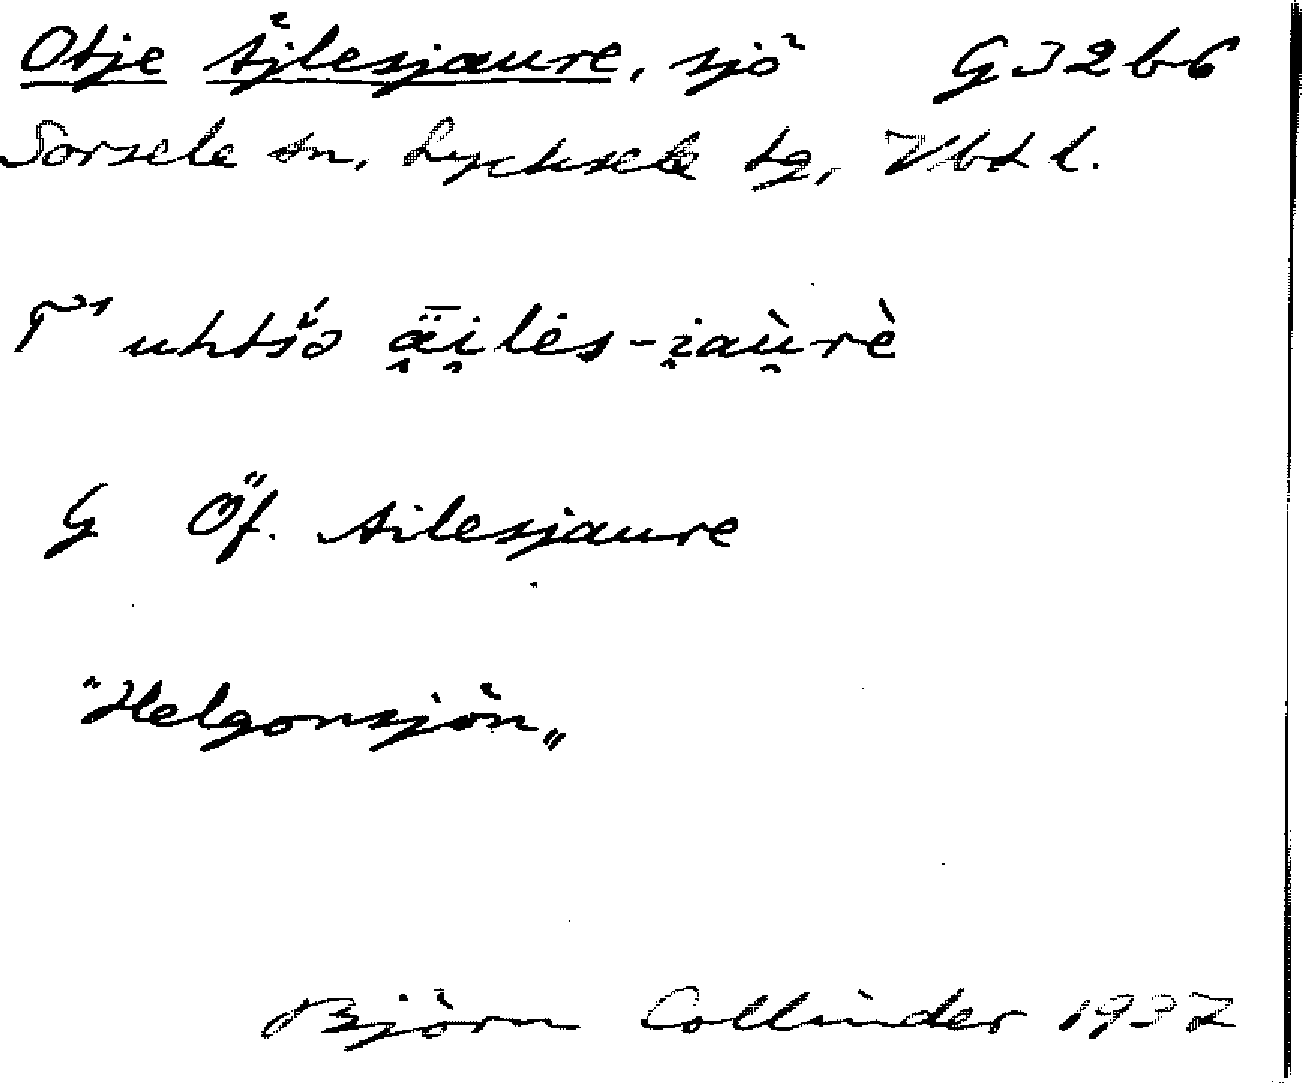 Otje Äjlesjaure, sjö G32b6
Sorsele sn, Lycksele lg, Vbtl.
uhtśə ā̤i̯les-i̯au̯rè
G Öf. Ailesjaure
"Helgonsjön„
Björn Collinder 1937